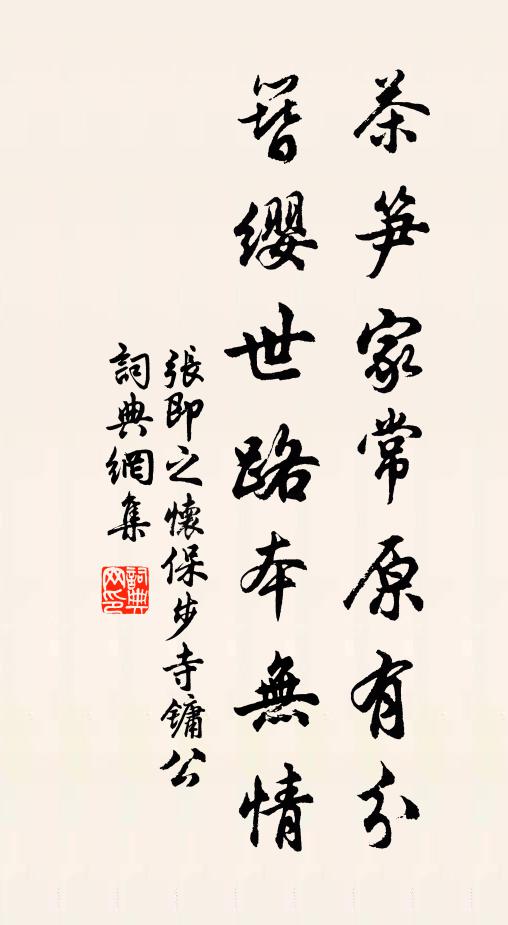 茶笋家常原有分
簪纓世路本無情
張即之懷保步寺鏞公
詞典網集
詞典网印